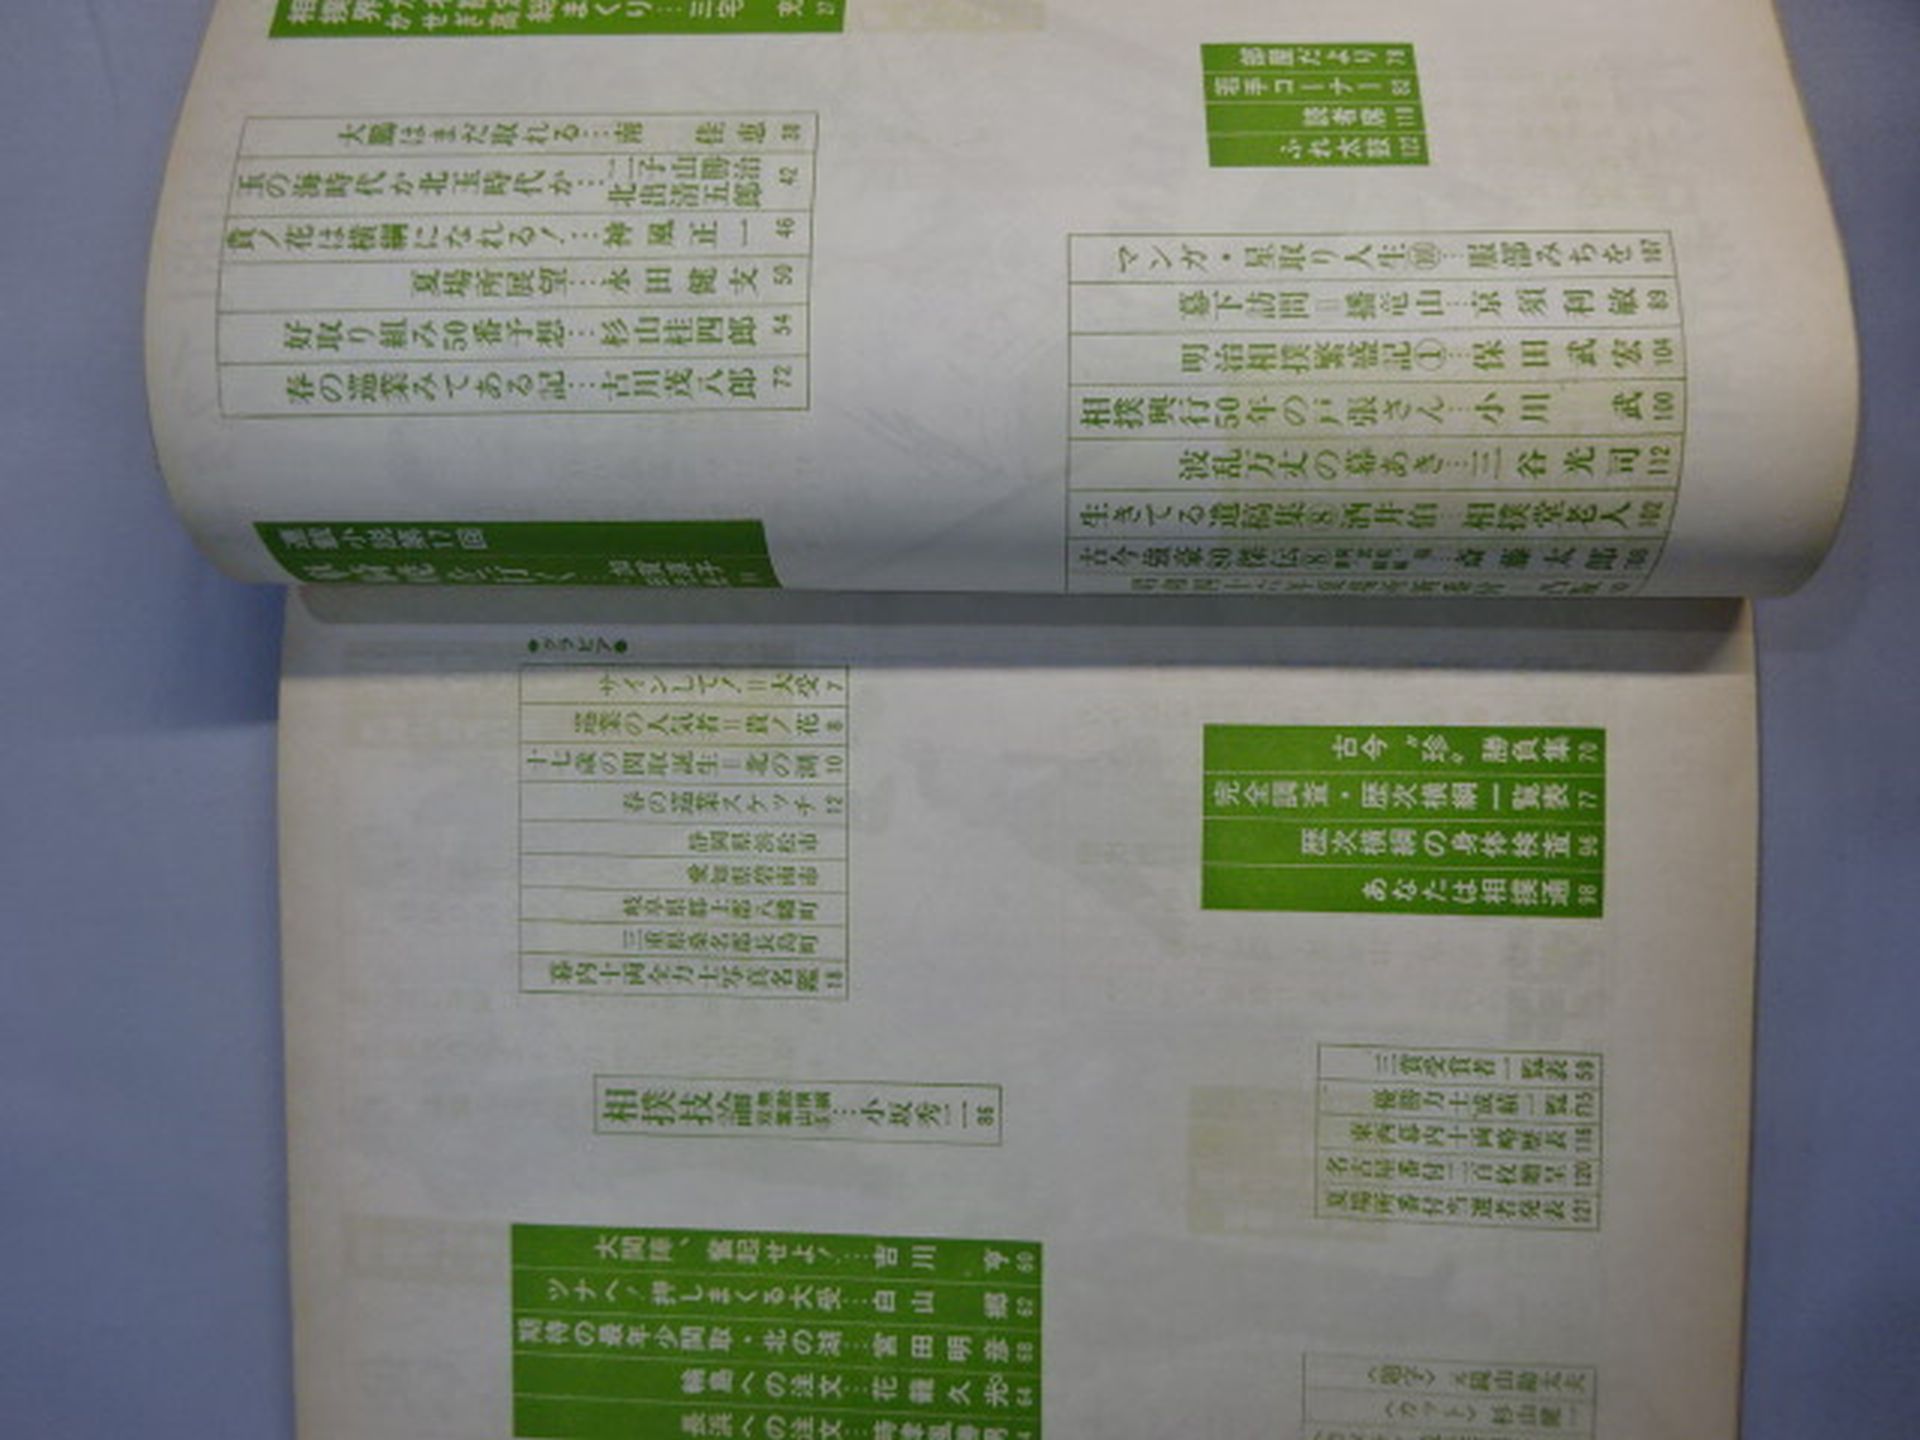 大鵬はまだ取れる…南 佳恵 38
玉の海時代か北玉時代か…二子山勝治 北出清五郎 42
貴ノ花は横綱になれる!…神風正一 46
夏場所展望…永田健支 50
好取り組み50番予想…杉山桂四郎 54
春の巡業みてある記…古川茂八郎 72
連載小説第17回
部屋だより 79
若手コーナー
読者席
ふれ太鼓 122
マンガ・星取り人生 …服部みちを
幕下訪問=播竜山…京須利敏 89
明治相撲繁盛記①…保田武宏 104
相撲興行50年の戸張さん…小川 武 100
波乱万丈の幕あき…三谷光司 112
生きてる遺稿集⑧酒井伯 相撲堂老人
斎藤太郎
●グラビア●
サインして!=大受 7
巡業の人気者=貴ノ花 8
十七歳の関取誕生=北の湖 10
春の巡業スケッチ 12
静岡県浜松市
愛知県碧南市
岐阜県郡上郡八幡町
三重県桑名郡長島町
幕内十両全力士写真名鑑 18
古今〝珍〟勝負集 70
完全調査・歴次横綱一覧表 77
歴次横綱の身体検査
あなたは相撲通 98
相撲技 …小坂秀二 86
三賞受賞者一覧表 59
優勝力士成績一覧
東西幕内十両略歴表
名古屋番付二百枚贈呈 120
夏場所番付当選者発表 121
大関陣、奮起せよ!…吉川 亨 60
ツナへ!押しまくる大受…白山 郷 62
期待の最年少関取・北の湖…宮田明彦 68
輪島への注文…花籠久光 64
長浜への注文…
〈カット〉杉山健一